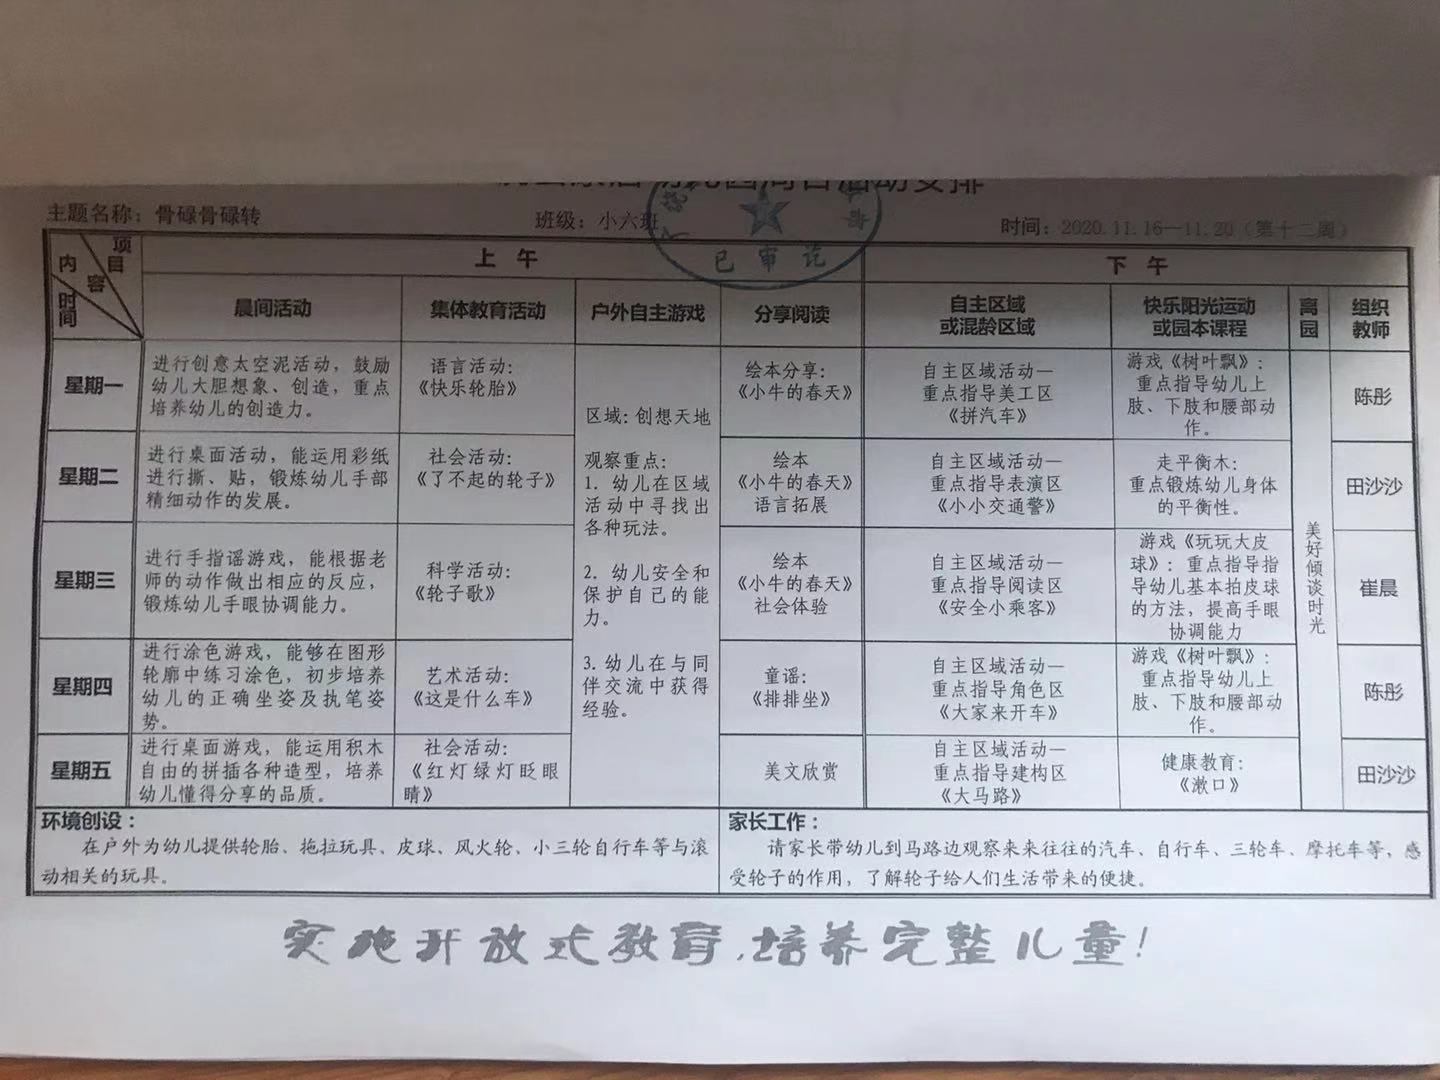 主题名称：骨碌骨碌转
班级：小六班
时间：2020.11.16—11.20（第十二周）
已审讫
项目
内容
时间
上 午
下 午
晨间活动
集体教育活动
户外自主游戏
分享阅读
自主区域
或混龄区域
快乐阳光运动
或园本课程
离
园
组织
教师
星期一
进行创意太空泥活动，鼓励
幼儿大胆想象、创造，重点
培养幼儿的创造力。
语言活动：
《快乐轮胎》
区域：创想天地
观察重点：
1. 幼儿在区域
活动中寻找出
各种玩法。
2. 幼儿安全和
保护自己的能
力。
3. 幼儿在与同
伴交流中获得
经验。
绘本分享：
《小牛的春天》
自主区域活动—
重点指导美工区
《拼汽车》
游戏《树叶飘》：
重点指导幼儿上
肢、下肢和腰部动
作。
美
好
倾
谈
时
光
陈彤
星期二
进行桌面活动，能运用彩纸
进行撕、贴，锻炼幼儿手部
精细动作的发展。
社会活动：
《了不起的轮子》
绘本
《小牛的春天》
语言拓展
自主区域活动—
重点指导表演区
《小小交通警》
走平衡木：
重点锻炼幼儿身体
的平衡性。
田沙沙
星期三
进行手指谣游戏，能根据老
师的动作做出相应的反应，
锻炼幼儿手眼协调能力。
科学活动：
《轮子歌》
绘本
《小牛的春天》
社会体验
自主区域活动—
重点指导阅读区
《安全小乘客》
游戏《玩玩大皮
球》：重点指导指
导幼儿基本拍皮球
的方法，提高手眼
协调能力
崔晨
星期四
进行涂色游戏，能够在图形
轮廓中练习涂色，初步培养
幼儿的正确坐姿及执笔姿
势。
艺术活动：
《这是什么车》
童谣：
《排排坐》
自主区域活动—
重点指导角色区
《大家来开车》
游戏《树叶飘》：
重点指导幼儿上
肢、下肢和腰部动
作。
陈彤
星期五
进行桌面游戏，能运用积木
自由的拼插各种造型，培养
幼儿懂得分享的品质。
社会活动：
《红灯绿灯眨眼
睛》
美文欣赏
自主区域活动—
重点指导建构区
《大马路》
健康教育：
《漱口》
田沙沙
环境创设：
在户外为幼儿提供轮胎、拖拉玩具、皮球、风火轮、小三轮自行车等与滚
动相关的玩具。
家长工作：
请家长带幼儿到马路边观察来来往往的汽车、自行车、三轮车、摩托车等，感
受轮子的作用，了解轮子给人们生活带来的便捷。
实施开放式教育，培养完整儿童！